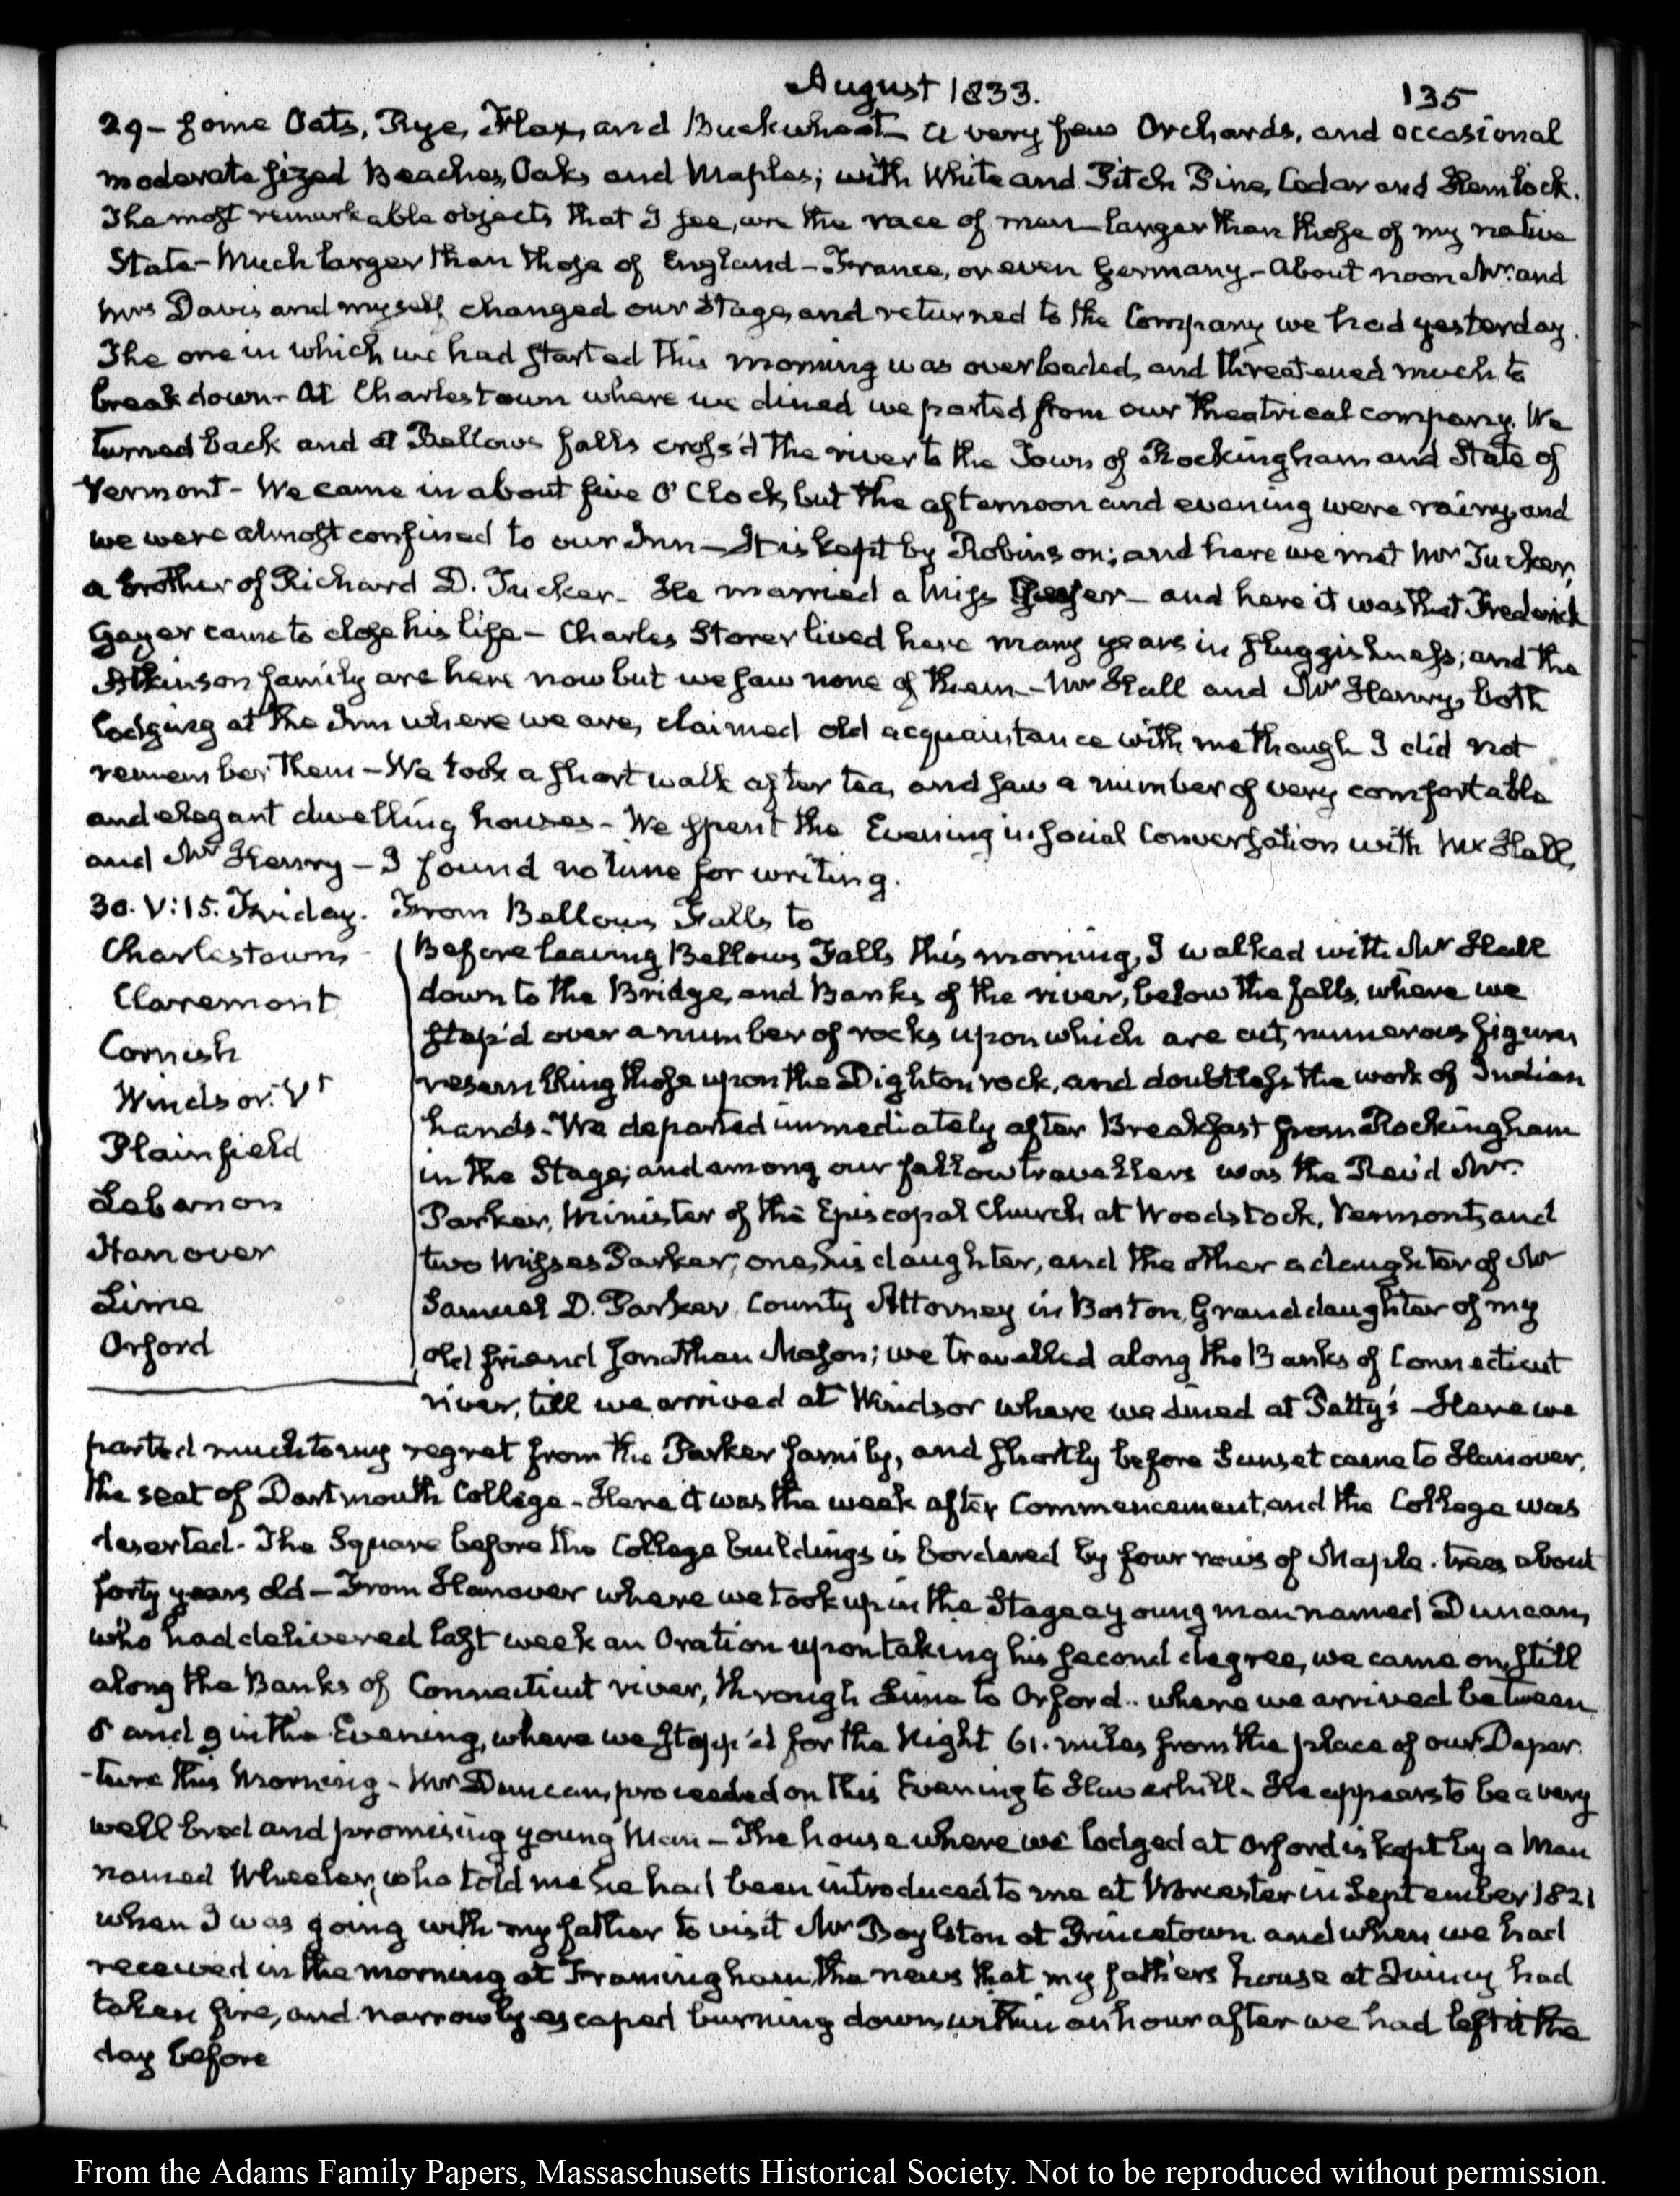 August 1833. 135
29- some Oats, Rye, Flax, and Buckwheat a very few Orchards, and occasional
moderate sized Beaches, Oaks and Maples; with White and Pitch Pine, Cedar and Hemlock.
The most remarkable objects that I see, are the race of men—larger than those of my native
State- Much larger than those of England - France, or even Germany - About noon Mr. and
Mrs Davis and myself changed our Stage, and returned to the Company we had yesterday.
The one in which we had started this morning was overloaded, and threatened much to
break down- At Charlestown where we dined we parted from our theatrical company. We
turned back and at Bellows falls cross'd the river to the Town of Rockingham and State of
Vermont - We came in about five O'Clock, but the afternoon and evening were rainy, and
we were almost confined to our Inn - It is kept by Robinson; and here we met Mr Tucker,
a brother of Richard D. Tucker - He married a Miss — and here it was that Frederick
Geyer came to close his life - Charles Storer lived here many years in sluggishness; and the
Atkinson family are here now but we saw none of them - Mr Hall and Mr Henry, both
lodging at the Inn where we are, claimed old acquaintance with me though I did not
remember them - We took a short walk after tea, and saw a number of very comfortable
and elegant dwelling houses - We spent the Evening in social Conversation with Mr Hall,
and Mr Henry - I found no time for writing.
30. V:15. Friday. From Bellows Falls to
Charlestown
Claremont
Cornish
Windsor. Vt
Plainfield
Lebanon
Hanover
Lime
Orford
Before leaving Bellows Falls this morning, I walked with Mr Hall
down to the Bridge, and Banks of the river, below the falls, where we
step'd over a number of rocks upon which are cut, numerous figures
resembling those upon the Dighton rock, and doubtless the work of Indian
hands - We departed immediately after Breakfast from Rockingham
in the Stage; and among our fellow travellers was the Revd Mr
Parker, Minister of the Episcopal Church at Woodstock, Vermont, and
two Misses Parker; one, his daughter, and the other a daughter of Mr
Samuel D. Parker, County Attorney in Boston, Granddaughter of my
old friend Jonathan Mason; we travelled along the Banks of Connecticut
river, till we arrived at Windsor where we dined at Patty's - Here we
parted much to my regret from the Parker family, and shortly before Sunset came to Hanover,
the seat of Dartmouth College - Here it was the week after Commencement, and the College was
deserted - The Square before the College buildings is bordered by four rows of Maple-trees about
forty years old - From Hanover where we took up in the Stage a young man named Duncan,
who had delivered last week an Oration upon taking his second degree, we came on, still
along the Banks of Connecticut river, through Lime to Orford - where we arrived between
8 and 9 in the Evening, where we stopp'd for the Night 61. miles from the place of our Depar-
-ture this Morning - Mr Duncan proceeded on this Evening to Haverhill - He appears to be a very
well bred and promising young Man - The house where we lodged at Orford is kept by a Man
named Wheeler, who told me he had been introduced to me at Worcester in September 1821
when I was going with my father to visit Mr Boylston at Princetown and when we had
received in the morning at Framingham, the news that my fathers house at Quincy had
taken fire, and narrowly escaped burning down, within an hour after we had left it the
day before
From the Adams Family Papers, Massaschusetts Historical Society. Not to be reproduced without permission.